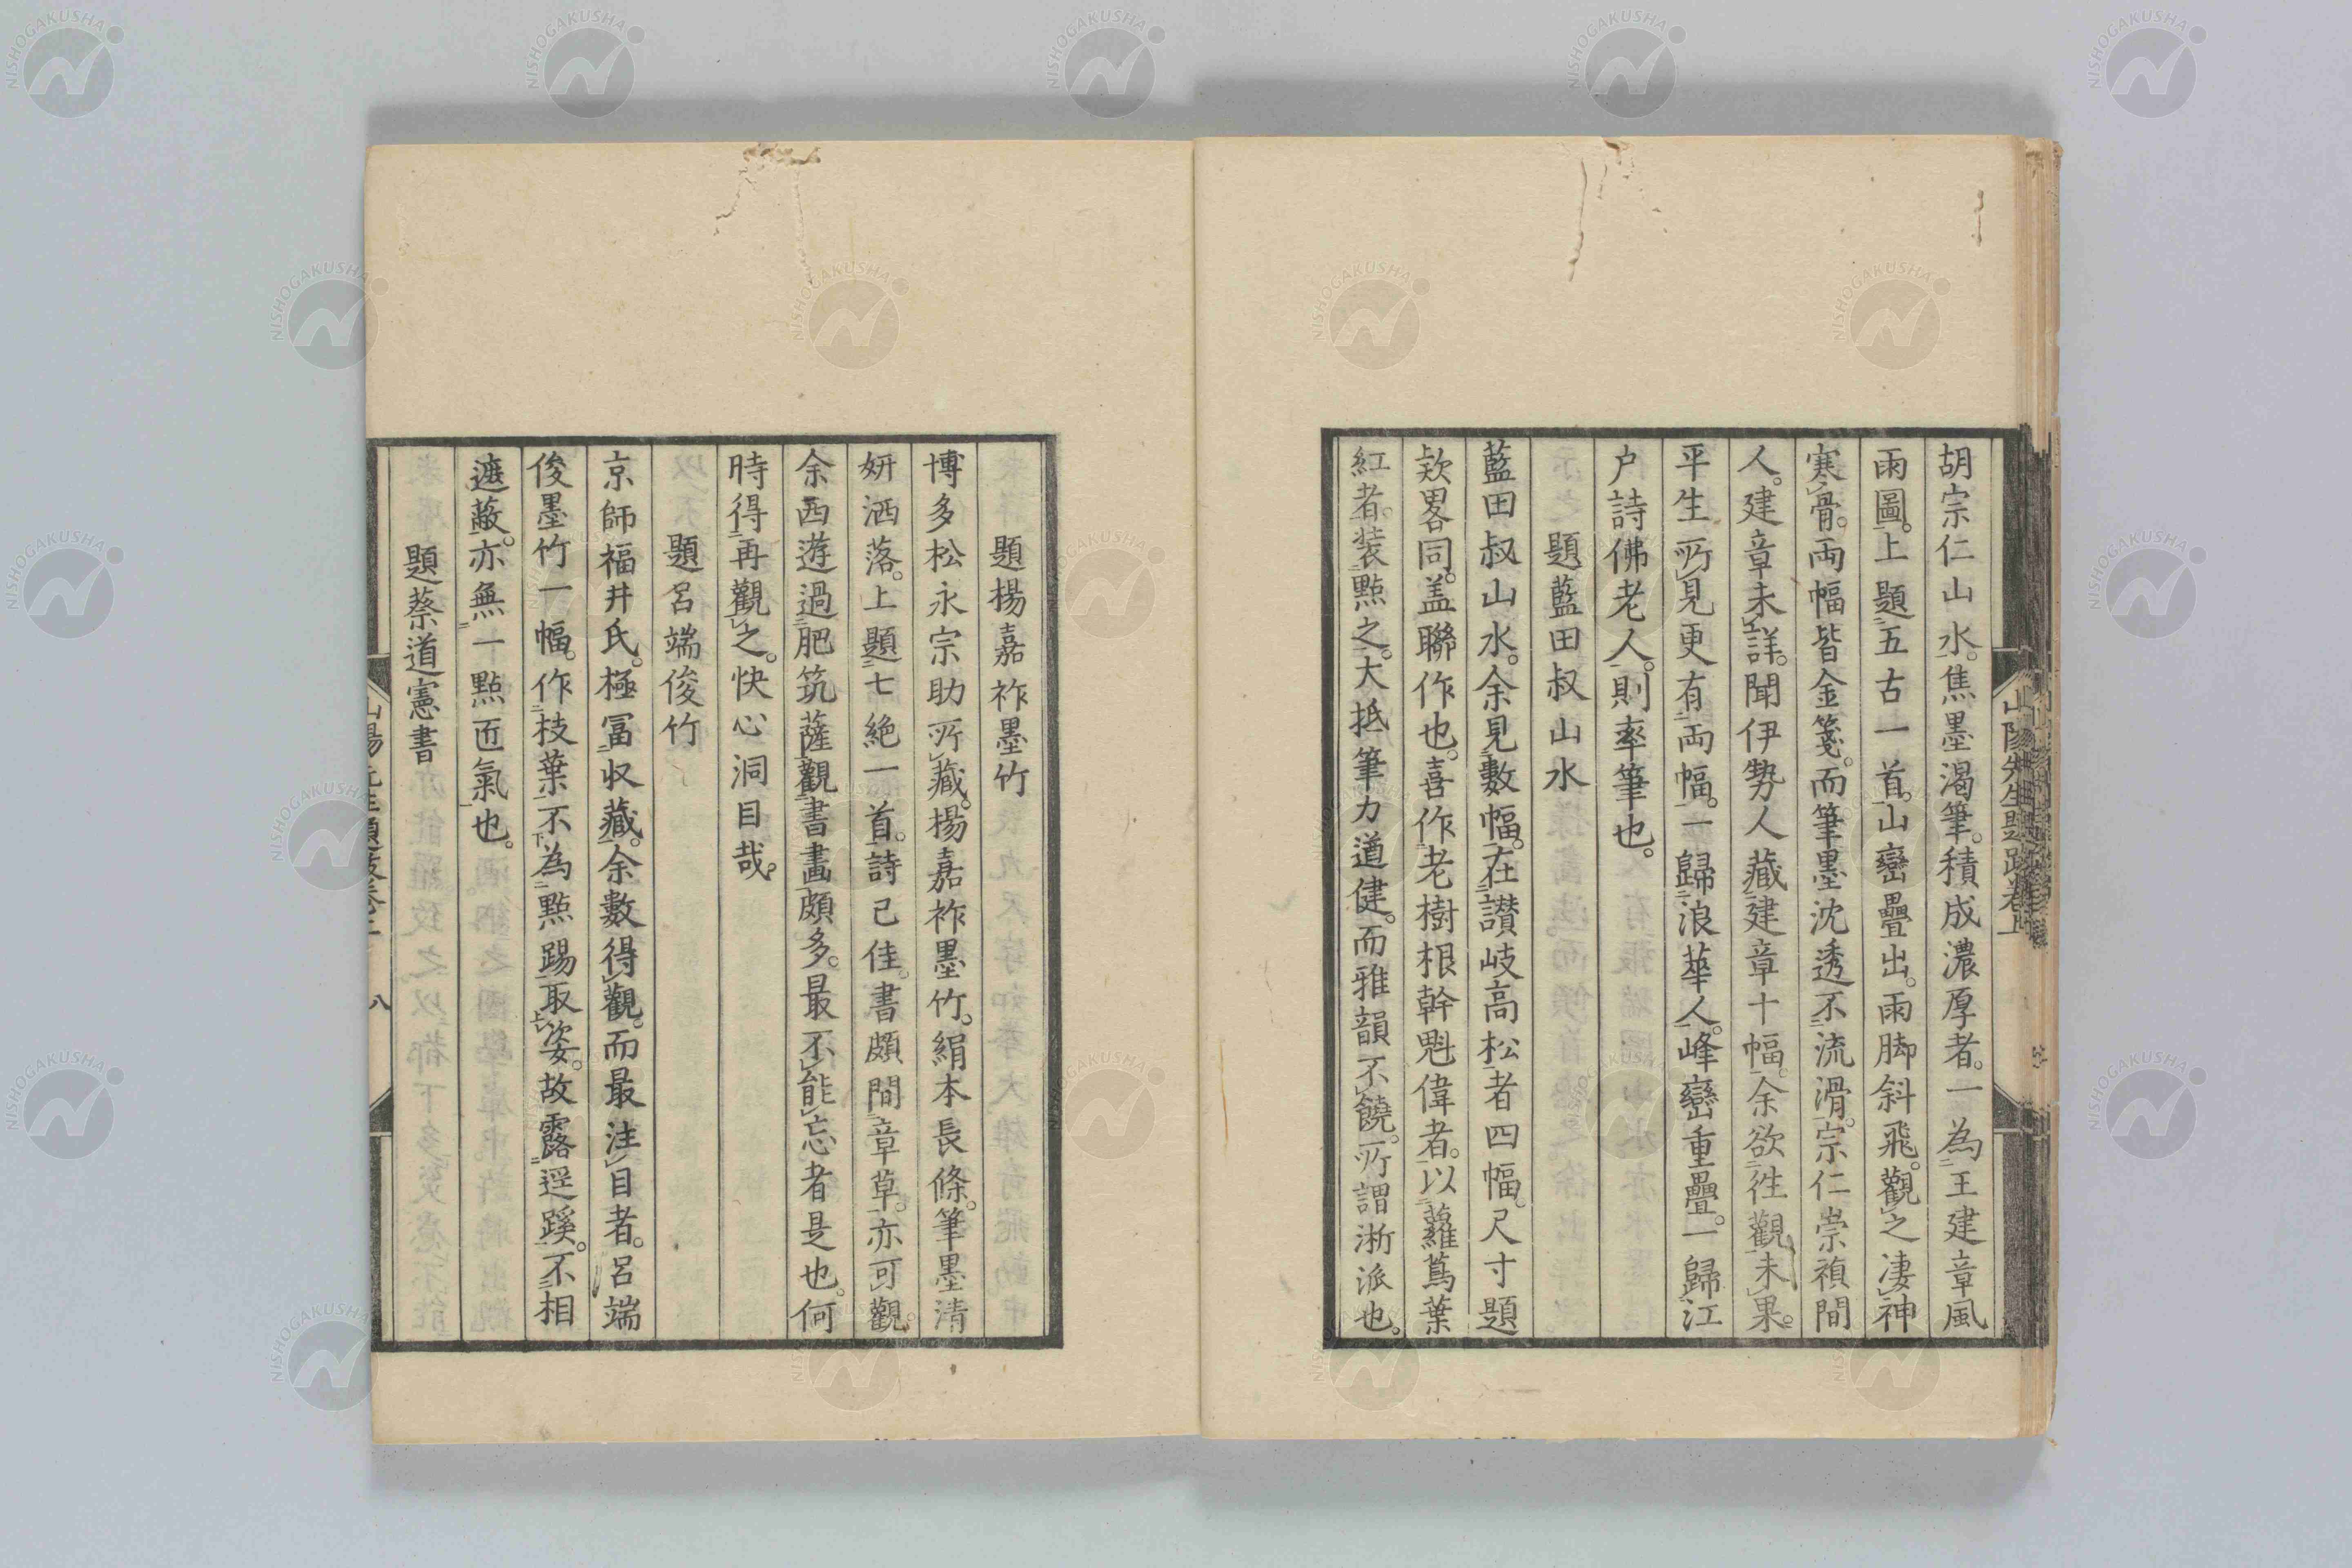 胡宗仁山水。焦墨渴筆。積成濃厚者。一為王建章風
雨圖。上題五古一首。山巒疊出。雨脚斜飛。觀之凄神
寒骨。両幅皆金箋。而筆墨沈透不流滑。宗仁崇禎間
人。建章未詳。聞伊勢人藏建章十幅。余欲徃觀未果。
平生所見更有両幅。一歸浪華人。峰巒重疊。一歸江
户詩佛老人。則率筆也。
題藍田叔山水
藍田叔山水。余見數幅。在讃岐高松者四幅。尺寸題
欵畧同。盖聯作也。喜作老樹根幹魁偉者。以蘿蔦葉
紅者。装點之。大抵筆力遒健。而雅韻不饒。所謂淅派也。
題楊嘉祚墨竹
博多松永宗助所藏。楊嘉祚墨竹。絹本長條。筆墨清
妍洒落。上題七絶一首。詩已佳。書頗間章草。亦可觀。
余西遊過肥筑薩觀書畫頗多。最不能忘者是也。何
時得再觀之。快心洞目哉。
題呂端俊竹
京師福井氏。極冨収藏。余數得觀。而最注目者。呂端
俊墨竹一幅。作枝葉不為點踢取姿。故露逕蹊。不相
遮蔽。亦無一點匠氣也。
題蔡道憲書
山陽先生題跋卷上
八